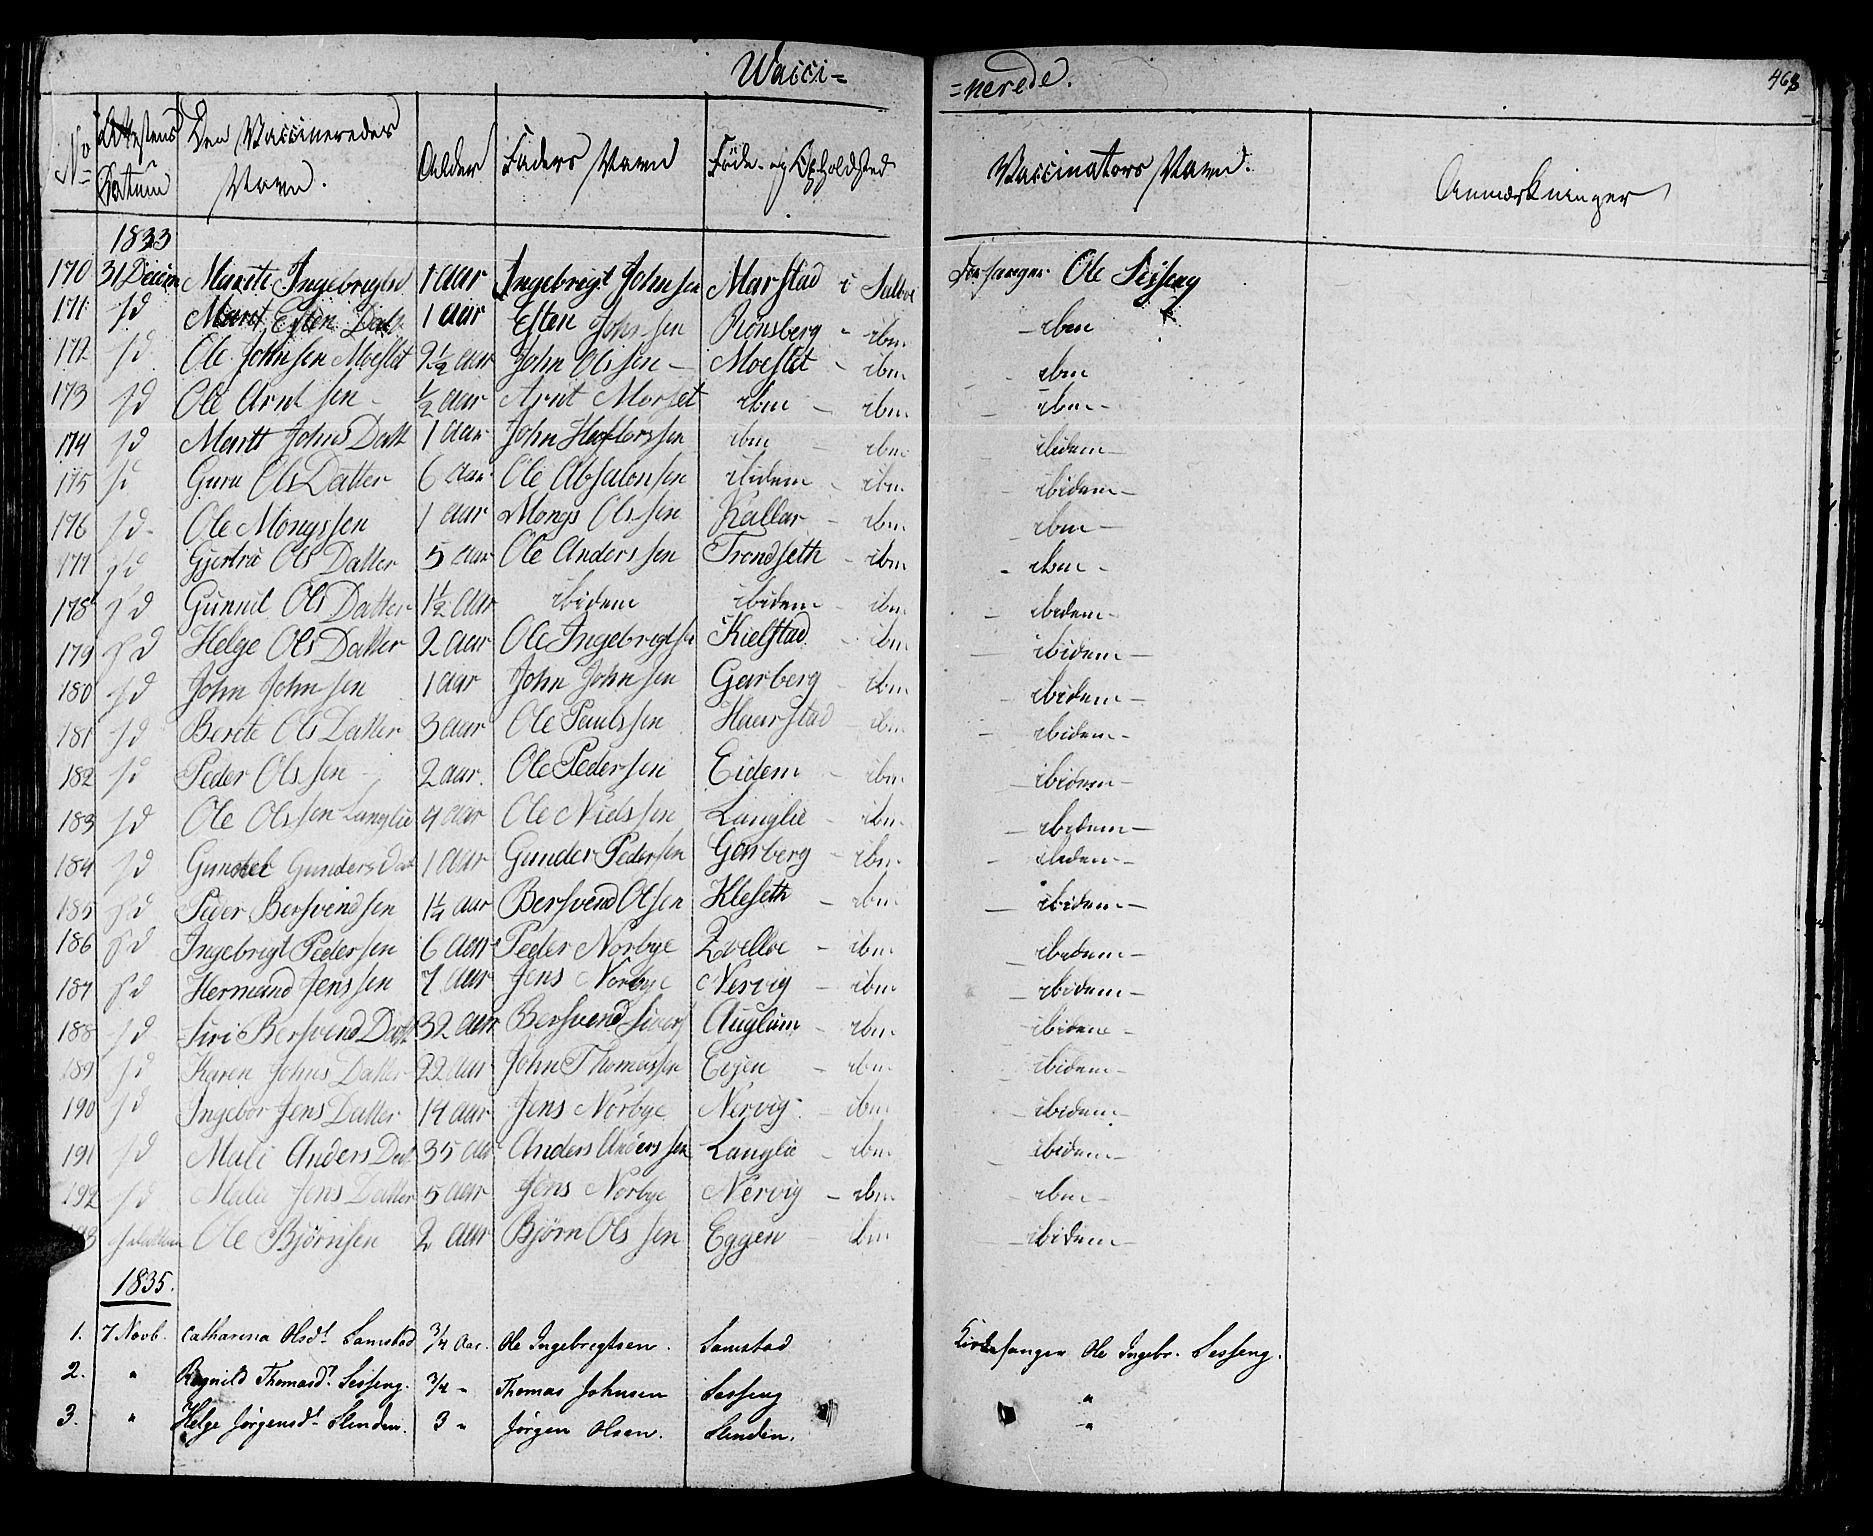 Wacci=
=nerede.
468
No Attestens Datum Den Vaccineredes Navn. Alder Faders Navn Føde- og Opholdsted Vaccinators Navn. Anmærkninger
1833
170 31 Decem Marete Ingebrigtsd 1 aar Ingebrigt Johnsen Marstad i Selboe Forsanger Ole Sesseng
171 sd Marit Esten Datt 1 aar Esten Johnsen Rönsberg - ibm - ibm
172 sd Ole Johnsen Moeslet 2½ aar John Olssen - Moeslet - ibm - ibm
173 sd Ole Arntsen - ½ aar Arnt Morset ibm - ibm - ibm -
174 sd Marit Johns Datt 1 aar John Haflorssen ibm - ibm ibidem -
175 sd Guru Ols Datter 6 aar Ole Absalonsen ibidem - ibm - ibidem -
176 sd - Ole Mongssen 1 aar Mongs Olssen Kallar - ibm - ibm -
177 sd Gjertru Ols Datter 5 aar Ole Anderssen Trondseth - ibm - ibm -
178 sd Gunnil Ols Datter 1½ aar ibidem ibidem - ibm - ibidem -
179 sd Helge Ols Datter 2 aar Ole Ingebrigtsn Kielstad - ibm - ibidem -
180 sd John Johnsen 1 aar John Johnsen Garberg - ibm - ibidem -
181 sd Berete Ols Datter 3 aar Ole Paulssen Haarstad - ibm - ibidem -
182 sd Peder Olssen - 2 aar. Ole Pedersen Eidem - ibm - ibidem -
183 sd Ole Olssen Langlie 4 aar Ole Nielssen Langlie - ibm - ibidem -
184 sd Gunders Dat 1 aar Gunder Pedersen Garberg - ibm - ibidem -
185 sd Peder Bersvendsen 1¼ aar Bersvend Olsen Kleseth - ibm - ibidem -
186 sd Ingebrigt Pedersen 6 aar Peder Norbye Qvelloe - ibm - ibidem -
187 sd Hermand Jenssen 7 aar Jens Norbye Nervig - ibm - ibidem -
188 sd Siri Bersvend Datt 32 aar Bersvend Sivers Auglum - ibm - ibidem -
189 sd Karen Johns Datter 22 aar John Thomassen Eijen - ibm - ibidem -
190 sd Ingebor Jens Datter 14 aar Jens Norbye Nervig - ibm - ibidem -
191 sd Mali Anders Dat 35 aar Anders Anderssen Langlie - ibm - ibidem -
192 sd Malie Jens Datter 5 aar Jens Norbye Nervig - ibm - ibm -
193 Ole Bjørnsen 2 aar Bjørn Olssen Eggen - ibm - ibidem -
1835.
1. 7 Novb. Catharina Olsdt. Samstad ¾ Aar. Ole Ingebregtsen. Samstad Kirkesanger Ole Ingebr. Sesseng.
2. " Ragnild Thomasdt. Sesseng. ¾ " Thomas Johnsen Sesseng "
3. " Helge Jørgensdt. Stenden. 3 " Jørgen Olsen. Slenden. "